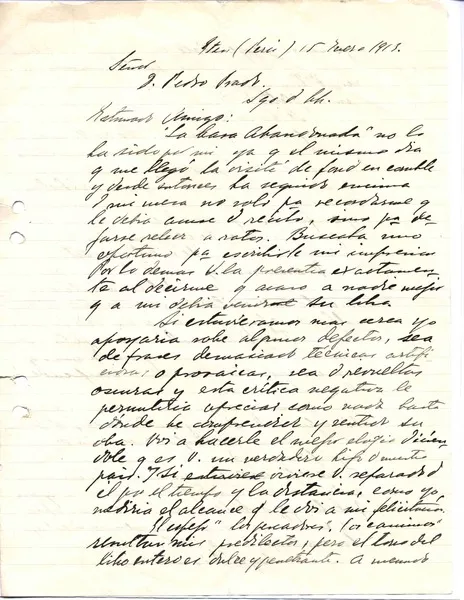 Iten (Perú) 15 Enero 1913.
Señor
D. Pedro Prado.
Sgo d Ch.
Estimado Amigo:
"La Casa Abandonada" no lo
ha sido por mi ya q el mismo dia
q me llegó, la visité de fond en comble
y desde entonces ha seguido encima
d mi mesa no solo pa recordarme q
le debia acuse d recibo, sino pa de-
jarse releer a ratos. Buscaba uno
oportuno pa escribirle mis impresiones
Por lo demas V. la presentia exactamen-
ta al decirme q acaso a nadie mejor
q a mi debia su libro.
Si estuvieramos mas cerca yo
apoyaria sobre algunos defectos, sea
de frases demasiado técnicas artifi-
ciosas o prosaicas, sea d revueltas
oscuras y esta critica negativa le
permitiria apreciar como nada hasta
dónde he comprendido y sentido su
obra. Voi a hacerle el mejor elogio dicién-
dole q es V. un verdadero hijo d nuestro
pais. I si viviese V. separado d
el por el tiempo y la distancia, como yo,
mediria el alcance q le doi a mi felicitacion.
"El espejo" "los pescadores", "los caminos"
resultan mis predilectos, pero el tono del
libro entero es dulce y penetrante. A menudo